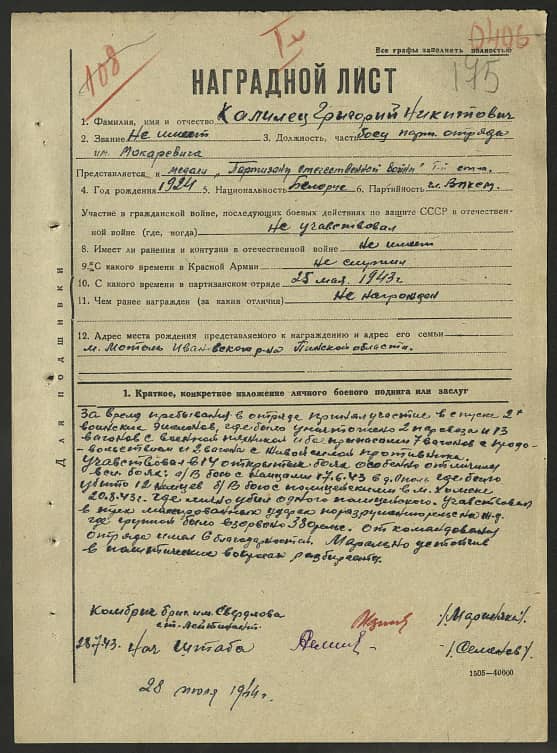 108
Iст
0406
Все графы заполнить полностью
195
НАГРАДНОЙ ЛИСТ
1. Фамилия, имя и отчество Калилец Григорий Никитович
2. Звание Не имеет 3. Должность, часть боец парт. отряда
им. Макаревича
Представляется к медали "Партизану отечественной войны" I-й степ.
4. Год рождения 1924 5. Национальность Белорус 6. Партийность чл. ВЛКСМ.
Участие в гражданской войне, последующих боевых действиях по защите СССР и отечествен-
ной войне (где, когда) Не учавствовал
8. Имеет ли ранения и контузии в отечественной войне Не имеет
9. С какого времени в Красной Армии Не служил
10. С какого времени в партизанском отряде 25 мая 1943 г
11. Чем ранее награжден (за какия отличия) Не награжден
12. Адрес места рождения представляемого к награждению и адрес его семьи
м. Мотоль Ивановского р-на Пинской области.
Для подшивки
1. Краткое, конкретное изложение личного боевого подвига или заслуг
За время пребывания в отряде принял участие в спуске 2х
воинских эшелонов, где было уничтожено 2 паровоза и 13
вагонов с военной техникой и боеприпасами 7 вагонов с продо-
вольствием и 2 вагона с живой силой противника.
Учавствовал в 14 открытых боях особенно отличился
в боях: а/ В бою с немцами 17.6.43 в д. где было
убито 12 немцев б/ В бою с полицейскими в м. Хомске
20.8.43 г. где лично убил одного полицейского. Учавствовал
в ударах по разрушению рельс на ж.д.
где группой было взорвано рельс. От командования
отряда имел 6 благодарностей. Морально устойчив
в политических вопросах разбирается.
Комбриг бриг. им. Свердлова
ст. Лейтенант /Маринякин/
28.7.43. Нач Штаба /Семенов/
1505—40000
28 июля 1944 г.